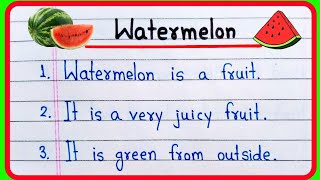 Watermelon
1. Watermelon is a fruit.
2. It is a very juicy fruit.
3. It is green from outside.